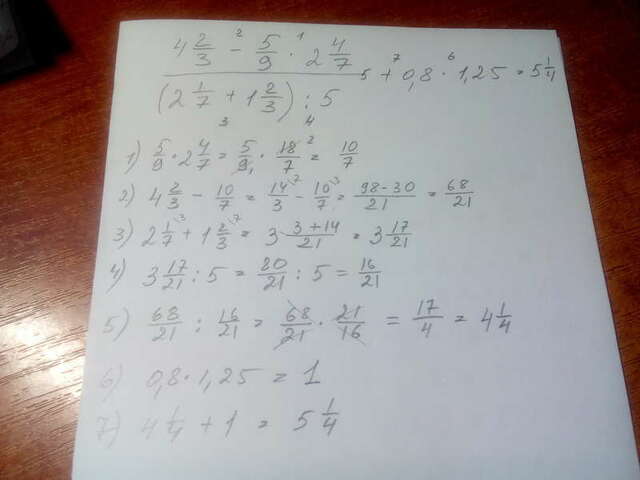 4 2/3 - 5/9 · 2 4/7
2 1
(2 1/7 + 1 2/3) : 5
3 4
5 + 0,8 · 1,25 = 5 1/4
7 6
1) 5/9 · 2 4/7 = 5/9 · 18/7 = 10/7
2) 4 2/3 - 10/7 = 14/3 - 10/7 = 98-30/21 = 68/21
3) 2 1/7 + 1 2/3 = 3 3+14/21 = 3 17/21
4) 3 17/21 : 5 = 80/21 : 5 = 16/21
5) 68/21 : 16/21 = 68/21 · 21/16 = 17/4 = 4 1/4
6) 0,8 · 1,25 = 1
7) 4 1/4 + 1 = 5 1/4